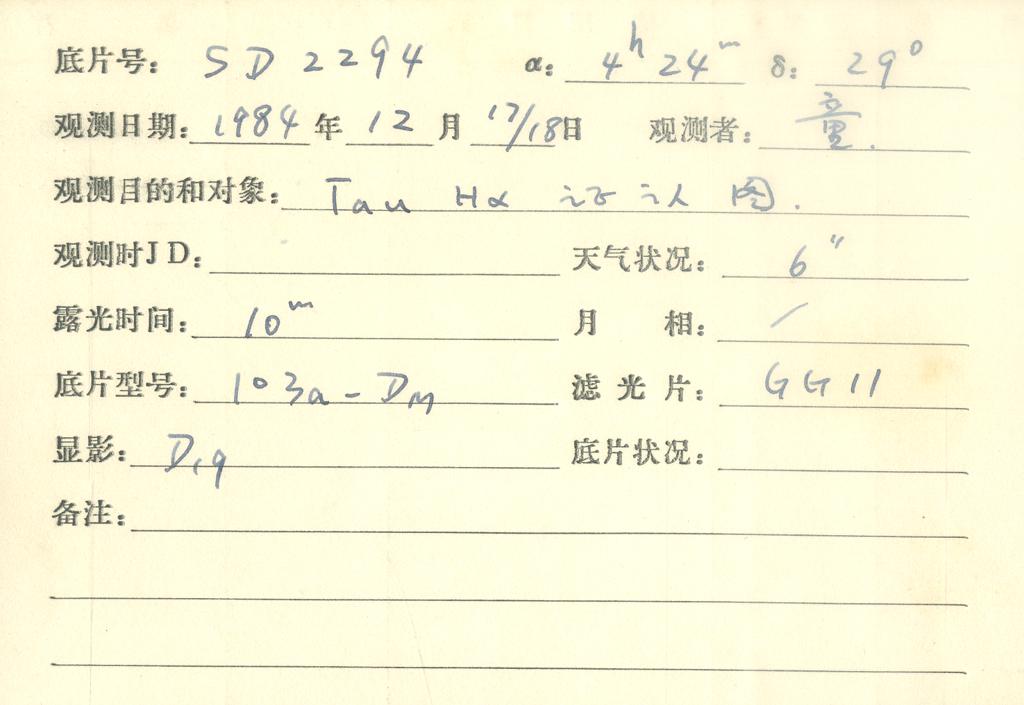 底片号: SD 2294 α: 4h 24m δ: 29°
观测日期: 1984 年 12 月 17/18日 观测者: 童.
观测目的和对象: Tau Hα 证认图.
观测时JD: 天气状况: 6"
露光时间: 10m 月 相: /
底片型号: 103a-D 滤光片: GG11
显影: D19 底片状况:
备注: